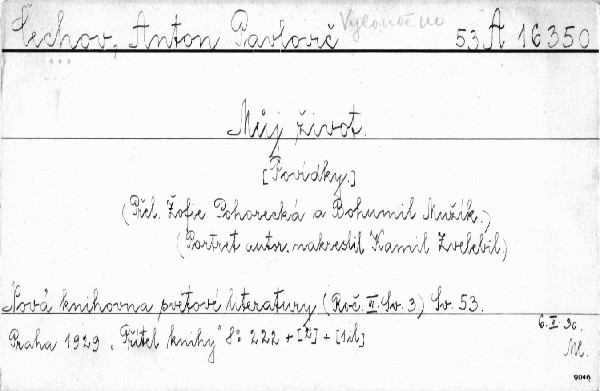 Čechov, Anton Pavlovič Vyloučeno 53 A 16350
Můj život.
[Povídky.]
(Přel. Žofie Pohorecká a Bohumil Mužík.)
(Portret autor. nakreslil Kamil Zvelebil)
Nová knihovna světové literatury (Roč. II. Sv. 3.) Sv. 53.
Praha 1929 „Přítel knihy" 8° 222 + [2] + [1 il]
6. II. 30.
9046